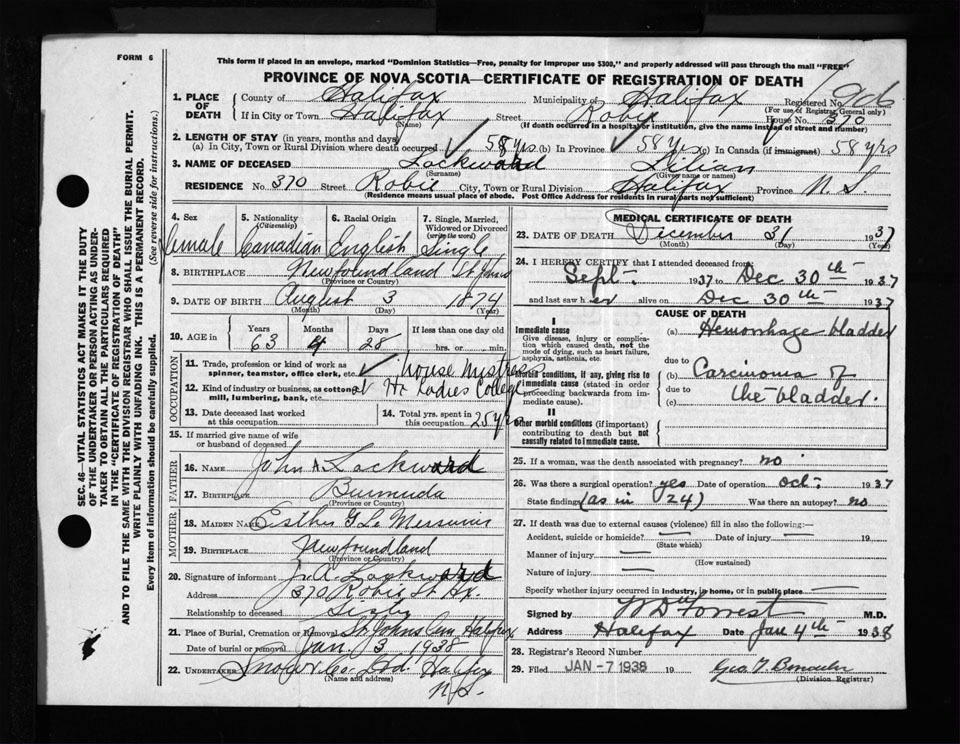 FORM 6
This form if placed in an envelope, marked "Dominion Statistics—Free, penalty for improper use $300," and properly addressed will pass through the mail "FREE"
PROVINCE OF NOVA SCOTIA—CERTIFICATE OF REGISTRATION OF DEATH
Registered No. 906
(For use of Registrar General only)
1. PLACE OF DEATH { County of Halifax Municipality of Halifax
If in City or Town Halifax Street Robie House No. 370
(Name) (If death occurred in a hospital or institution, give the name instead of street and number)
2. LENGTH OF STAY (in years, months and days)
(a) In City, Town or Rural Division where death occurred 58 yrs (b) In Province 58 yrs (c) In Canada (if immigrant) 58 yrs
3. NAME OF DECEASED Lockward Lilian
(Surname) (Given name or names)
RESIDENCE No. 370 Street Robie City, Town or Rural Division Halifax Province N. S.
(Residence means usual place of abode. Post Office Address for residents in rural parts not sufficient)
4. Sex female
5. Nationality (Citizenship) Canadian
6. Racial Origin English
7. Single, Married, Widowed or Divorced (write the word) Single
8. BIRTHPLACE Newfoundland St Johns
(Province or Country)
9. DATE OF BIRTH August 3 1874
(Month) (Day) (Year)
10. AGE in { Years 63 Months 4 Days 28 If less than one day old hrs. or min.
OCCUPATION
11. Trade, profession or kind of work as spinner, teamster, office clerk, etc. House Mistress
12. Kind of industry or business, as cotton mill, lumbering, bank, etc. at Hx Ladies College
13. Date deceased last worked at this occupation
14. Total yrs. spent in this occupation 25 yrs
15. If married give name of wife or husband of deceased
FATHER
16. Name John A. Lockward
17. Birthplace Bermuda
(Province or Country)
MOTHER
18. Maiden Name Esther G. Le Messurier
19. Birthplace Newfoundland
(Province or Country)
20. Signature of informant J. A. Lockward
Address 370 Robie St Hx.
Relationship to deceased Sister
21. Place of Burial, Cremation or Removal St Johns Cem Halifax
Date of burial or removal Jan. 3 1938
22. UNDERTAKER Snow & Co. Ltd. Halifax
(Name and address)
N.S.
MEDICAL CERTIFICATE OF DEATH
23. DATE OF DEATH December 31 1937
(Month) (Day) (Year)
24. I HEREBY CERTIFY that I attended deceased from
Sept. 1937 to Dec 30th 1937
and last saw her alive on Dec 30th 1937
CAUSE OF DEATH
I
Immediate cause
Give disease, injury or complication which caused death, not the mode of dying, such as heart failure, asphyxia, asthenia, etc.
Morbid conditions, if any, giving rise to immediate cause (stated in order proceeding backwards from immediate cause).
II
Other morbid conditions (if important) contributing to death but not causally related to immediate cause.
(a) Hemorrhage bladder
due to
(b) Carcinoma of
due to
(c) the bladder.
25. If a woman, was the death associated with pregnancy? no
26. Was there a surgical operation? yes Date of operation oct. 1937
State findings (as in 24) Was there an autopsy? no
27. If death was due to external causes (violence) fill in also the following:—
Accident, suicide or homicide? — Date of injury — 19
(State which)
Manner of injury —
(How sustained)
Nature of injury —
Specify whether injury occurred in industry, in home, or in public place —
Signed by W D Forrest M.D.
Address Halifax Date Jan 4th 1938
28. Registrar's Record Number
29. Filed JAN -7 1938 19
(Division Registrar)
SEC. 46—VITAL STATISTICS ACT MAKES IT THE DUTY
OF THE UNDERTAKER OR PERSON ACTING AS UNDER-
TAKER TO OBTAIN ALL THE PARTICULARS REQUIRED
IN THE "CERTIFICATE OF REGISTRATION OF DEATH"
AND TO FILE THE SAME WITH THE DIVISION REGISTRAR WHO SHALL ISSUE THE BURIAL PERMIT.
WRITE PLAINLY WITH UNFADING INK. THIS IS A PERMANENT RECORD.
Every item of information should be carefully supplied. (See reverse side for instructions.)